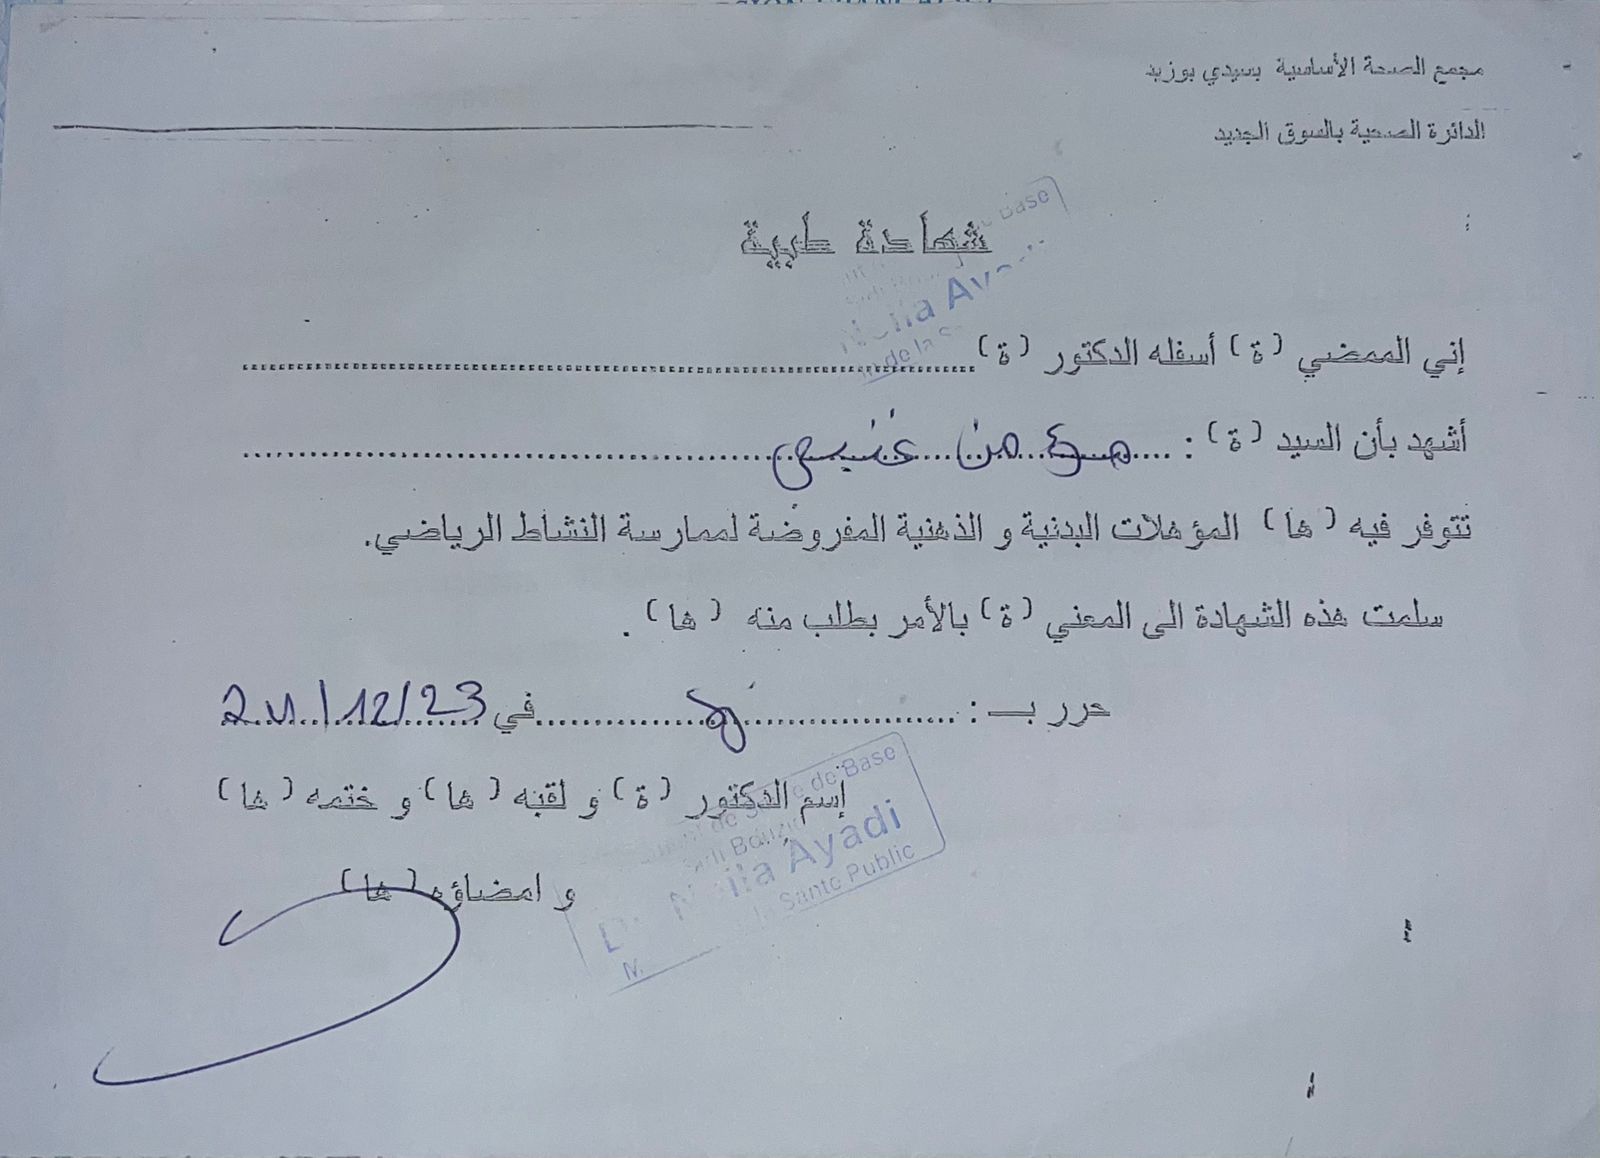 مجمع الصحة الأساسية بسيدي بوزيد
الدائرة الصحية بالسوق الجديد
شهادة طبية
Base
إني الممضي (ة) أسفله الدكتور (ة)
de la
أشهد بأن السيد (ة) : مؤمن غنيمي
تتوفر فيه (ها) المؤهلات البدنية و الذهنية المفروضة لممارسة النشاط الرياضي.
سلمت هذه الشهادة الى المعني (ة) بالأمر بطلب منه (ها) .
حرر بـ : في 24/12/23
إسم الدكتور (ة) و لقبه (ها) و ختمه (ها)
de Base
Ayadi
Santé Public
و امضاؤه (ها)